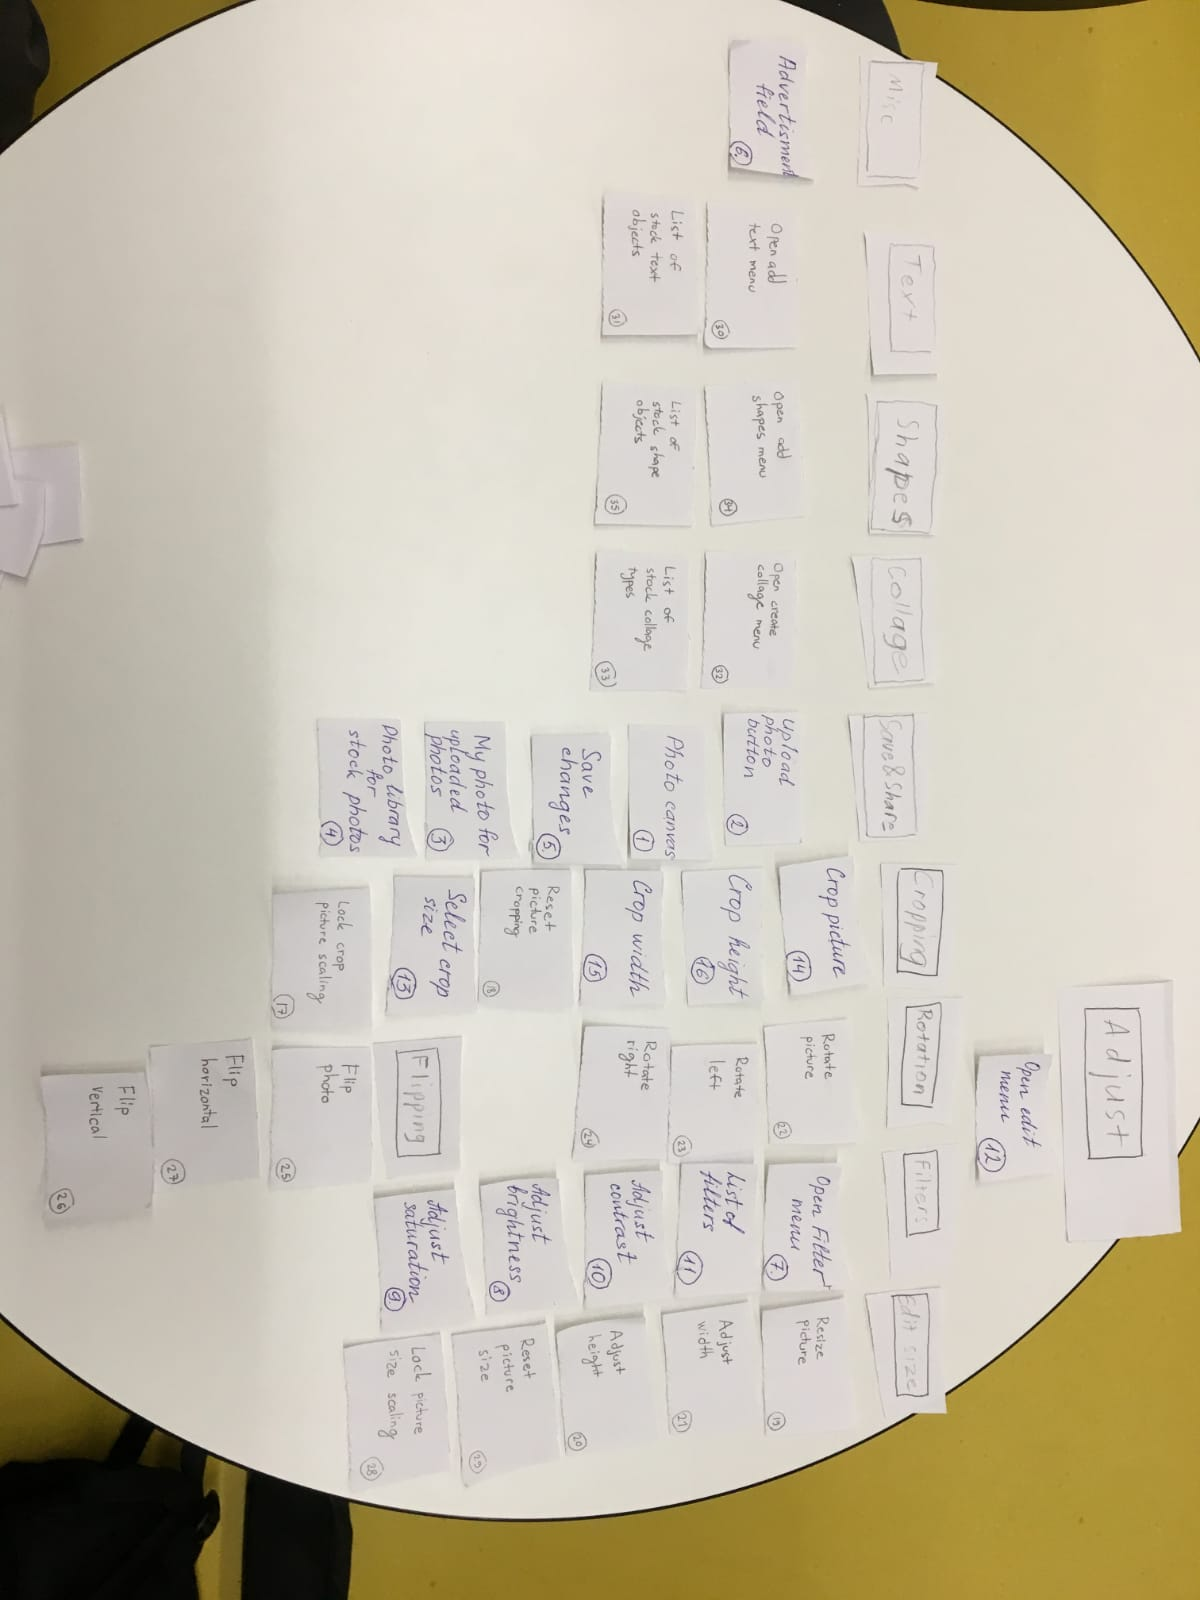 Adjust
Open edit
menu
12
Misc
Text
Shapes
Collage
Save&Share
Cropping
Rotation
Filters
Edit size
Advertisment
field
6.
Open add
text menu
30
List of
stock text
objects
31
Open add
shapes menu
34
List of
stock shape
objects
35
Open create
collage menu
32
List of
stock collage
types
33
Upload
photo
button
2
Photo canvas
1
Save
changes
5.
My photo for
uploaded
photos
3
Photo library
for
stock photos
4
Crop picture
14
Crop height
16
Crop width
15
Reset
picture
cropping
18
Select crop
size
13
Lock crop
picture scaling
17
Rotate
picture
22
Rotate
left
23
Rotate
right
24
Flipping
Flip
photo
25
Flip
horizontal
27
Flip
vertical
26
Open Filter
menu
7.
List of
filters
11
Adjust
contrast
10
Adjust
brightness
8
Adjust
saturation
9
Resize
picture
19
Adjust
width
21
Adjust
height
20
Reset
picture
size
29
Lock picture
size scaling
28